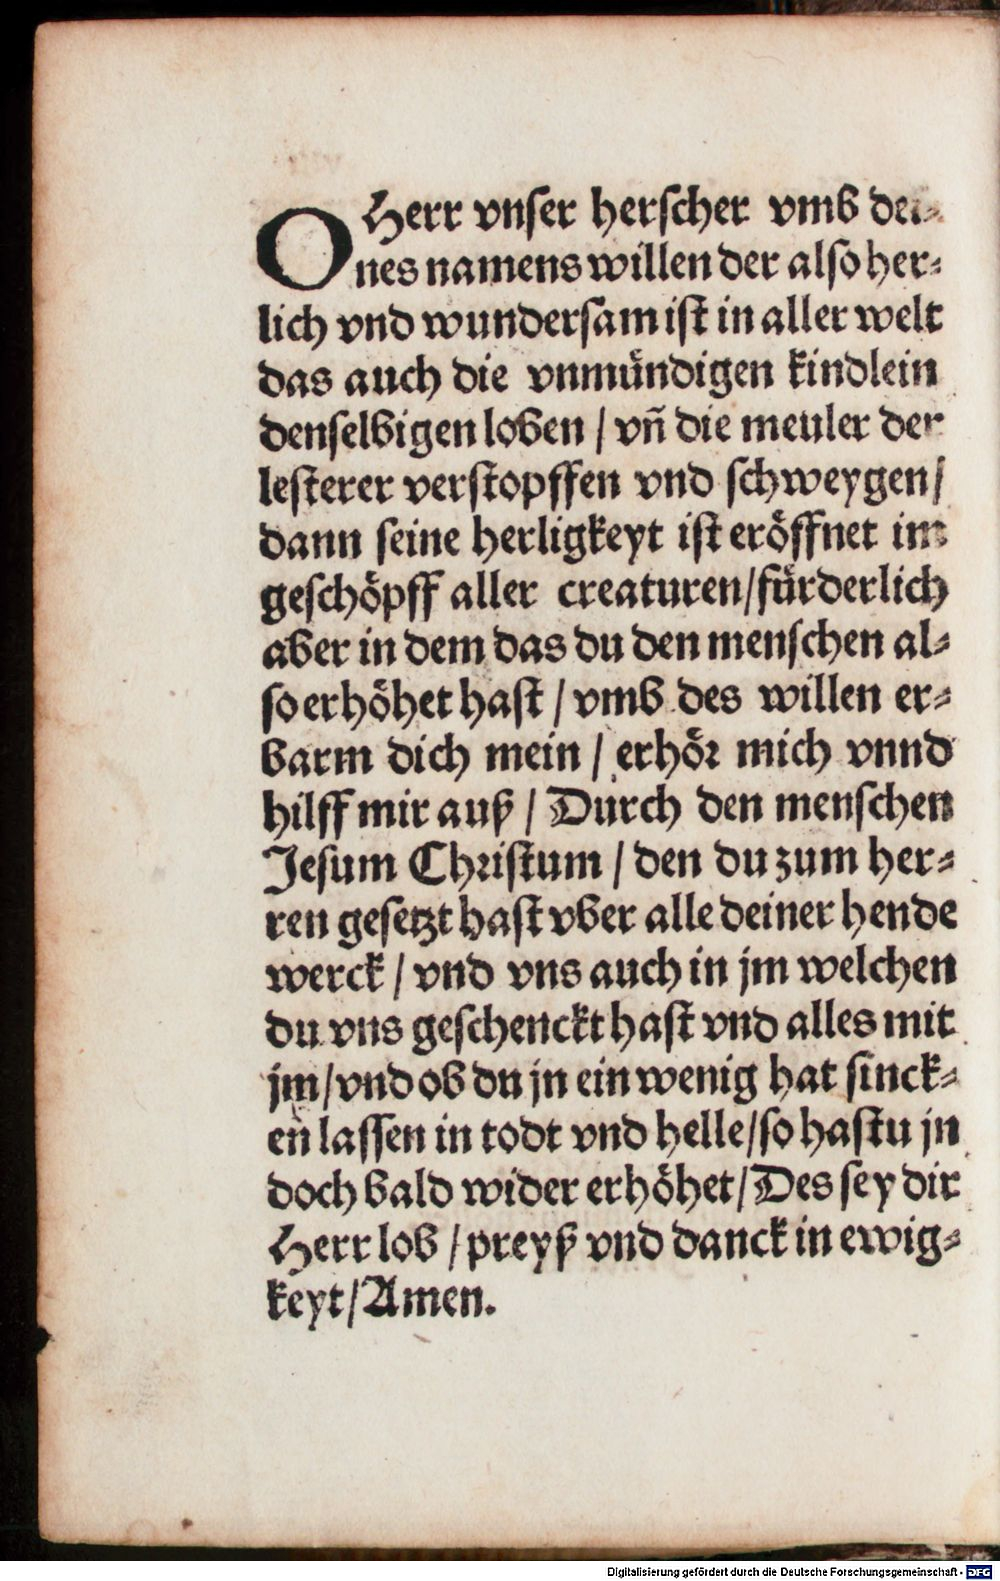 O Herr vnſer herſcher vmb dei⸗
nes namens willen der alſo her⸗
lich vnd wunderſam iſt in aller welt
das auch die vnmündigen kindlein
denſelbigen loben / vñ die meuler der
leſterer verſtopffen vnd ſchweygen /
dann ſeine herligkeyt iſt eröffnet im
geſchöpff aller creaturen / fürderlich
aber in dem das du den menſchen al⸗
ſo erhöhet haſt / vmb des willen er⸗
barm dich mein / erhör mich vnnd
hilff mir auß / Durch den menſchen
Jeſum Chriſtum / den du zum her⸗
ren geſetzt haſt vber alle deiner hende
werck / vnd vns auch in jm welchen
du vns geſchenckt haſt vnd alles mit
jm / vnd ob du jn ein wenig hat ſinck⸗
en laſſen in todt vnd helle / ſo haſtu jn
doch bald wider erhöhet / Des ſey dir
Herr lob / preyß vnd danck in ewig⸗
keyt / Amen.
Digitalisierung gefördert durch die Deutsche Forschungsgemeinschaft - DFG